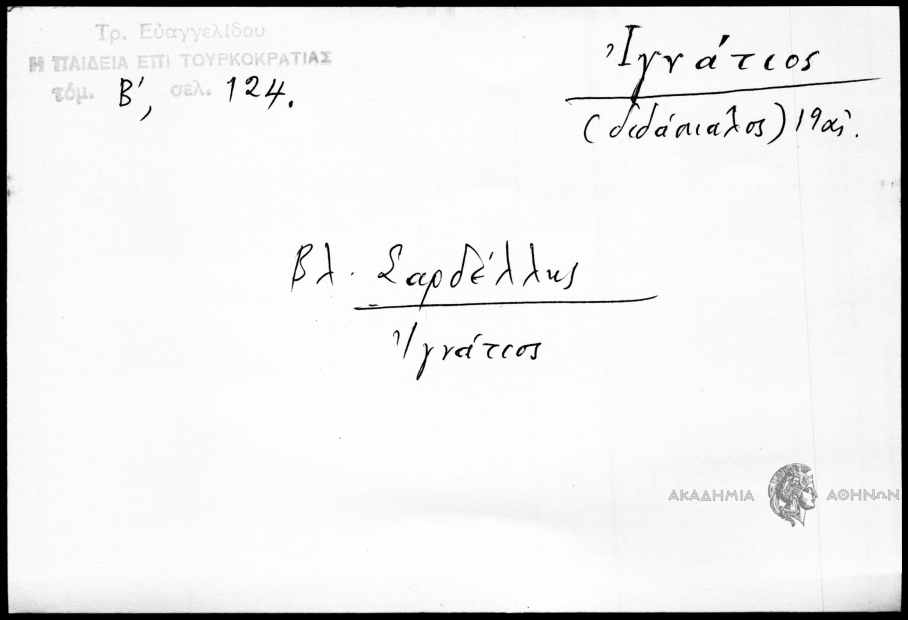 Τρ. Εὐαγγελίδου
Η ΠΑΙΔΕΙΑ ΕΠΙ ΤΟΥΡΚΟΚΡΑΤΙΑΣ
τόμ. Β', σελ. 124.
Ἰγνάτιος
(διδάσκαλος) 19 αἰ.
Βλ. Σαρδέλλης
Ἰγνάτιος
ΑΚΑΔΗΜΙΑ ΑΘΗΝΩΝ